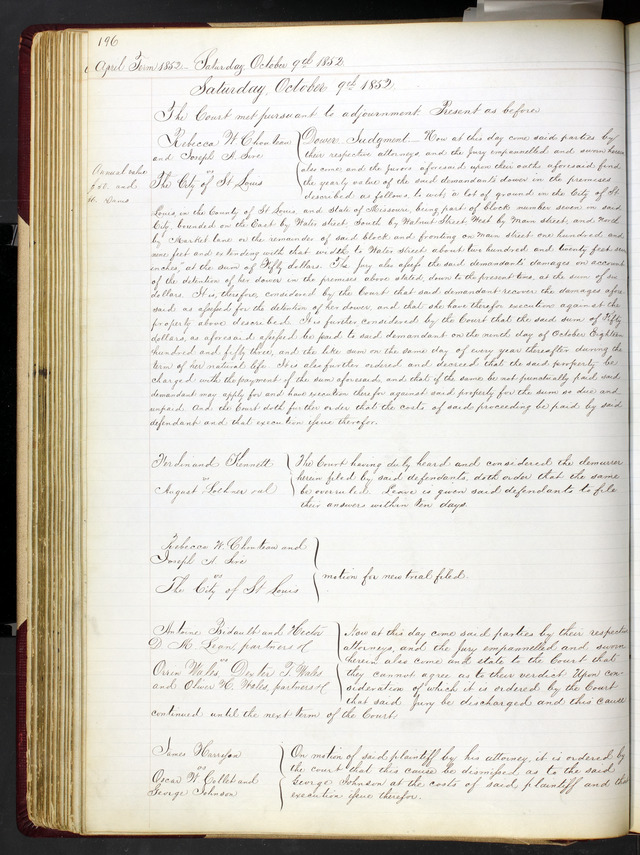 196
April Term 1852 – Saturday, October 9th 1852
Saturday, October 9th 1852
The Court met pursuant to adjournment Present as before
Rebecca W. Chouteau
and Joseph A. Sire
vs
The City of St Louis
Annual value
and
Dower Judgment – Now at this day come said parties by
their respective attorneys and the jury empannelled and sworn herein
also come and the jurors aforesaid upon their oaths aforesaid find
the yearly value of the said demandants dower in the premises
described as follows, to wit, a lot of ground in the City of St
Louis, in the County of St Louis, and State of Missouri, being part of block number seven in said
City, bounded on the East by Water Street, South by Walnut Street, West by Main street, and North
by Market lane or the remainder of said block and fronting on main street one hundred and
nine feet and extending with that width to Water street about two hundred and twenty feet
inches, at the sum of Fifty dollars. The Jury also assess the said demandants damages on account
of the detention of her dower in the premises above stated, down to the present time, at the sum of
dollars. It is, therefore, considered by the Court that said demandant recover the damages afore
said as assessed for the detention of her dower, and that she have therefor execution against the
property above described. It is further considered by the Court that the said sum of Fifty
dollars, as aforesaid assessed be paid to said demandant on the ninth day of October Eighteen
hundred and fifty three, and the like sum on the same day of every year thereafter during the
term of her natural life. It is also further ordered and decreed that the said property be
charged with the payment of the sum aforesaid, and that if the same be not punctually paid said
demandant may apply for and have execution therefor against said property for the sum so due and
unpaid. And the Court doth further order that the costs of said proceeding be paid by said
defendant and that execution issue therefor.
Ferdinand Kennett
vs
August Lochner et al
The Court having duly heard and considered the demurrer
herein filed by said defendants, doth order that the same
be overruled. Leave is given said defendants to file
their answers within ten days.
Rebecca W. Chouteau and
Joseph A. Sire
vs
The City of St Louis
motion for new trial filed.
Antoine Bidault and Hector
D. M. Lean, partners &c
Orrin Wales, Dexter T. Wales
and Oliver H. Wales, partners &c
Now at this day come said parties by their respective
attorneys, and the jury empannelled and sworn
herein also come and state to the Court that
they cannot agree as to their verdict. Upon con-
sideration of which it is ordered by the Court
that said Jury be discharged and this cause
continued until the next term of the Court.
James Harrison
vs
Oscar W. Collet and
George Johnson
On motion of said plaintiff by his attorney, it is ordered by
the court that this cause be dismissed as to the said
George Johnson at the costs of said plaintiff and that
execution issue therefor.